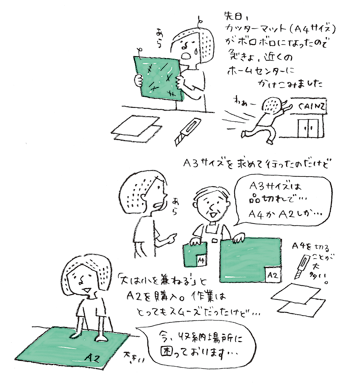 先日、
カッターマット(A4サイズ)
がボロボロになったので
急きょ、近くの
ホームセンターに
かけこみました
あら
わぁー
CAINZ
A3サイズを求めて行ったのだけど
あら
A3サイズは
品切れで…
A4かA2しか…
A4
A2
A4を切る
ことが
大
多い。
「大は小を兼ねる」と
A2を購入。作業は
とってもスムーズだったけど…
今、収納場所に
困っております…
A2
大きい